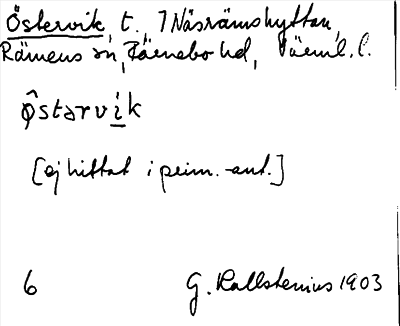 Östervik, t., 7 Näsrämshyttan,
Rämens sn, Färnebo hd, Värml. l.
ø̂stərvik
[ej hittat i prim.-ant.]
6 G. Kallstenius 1903